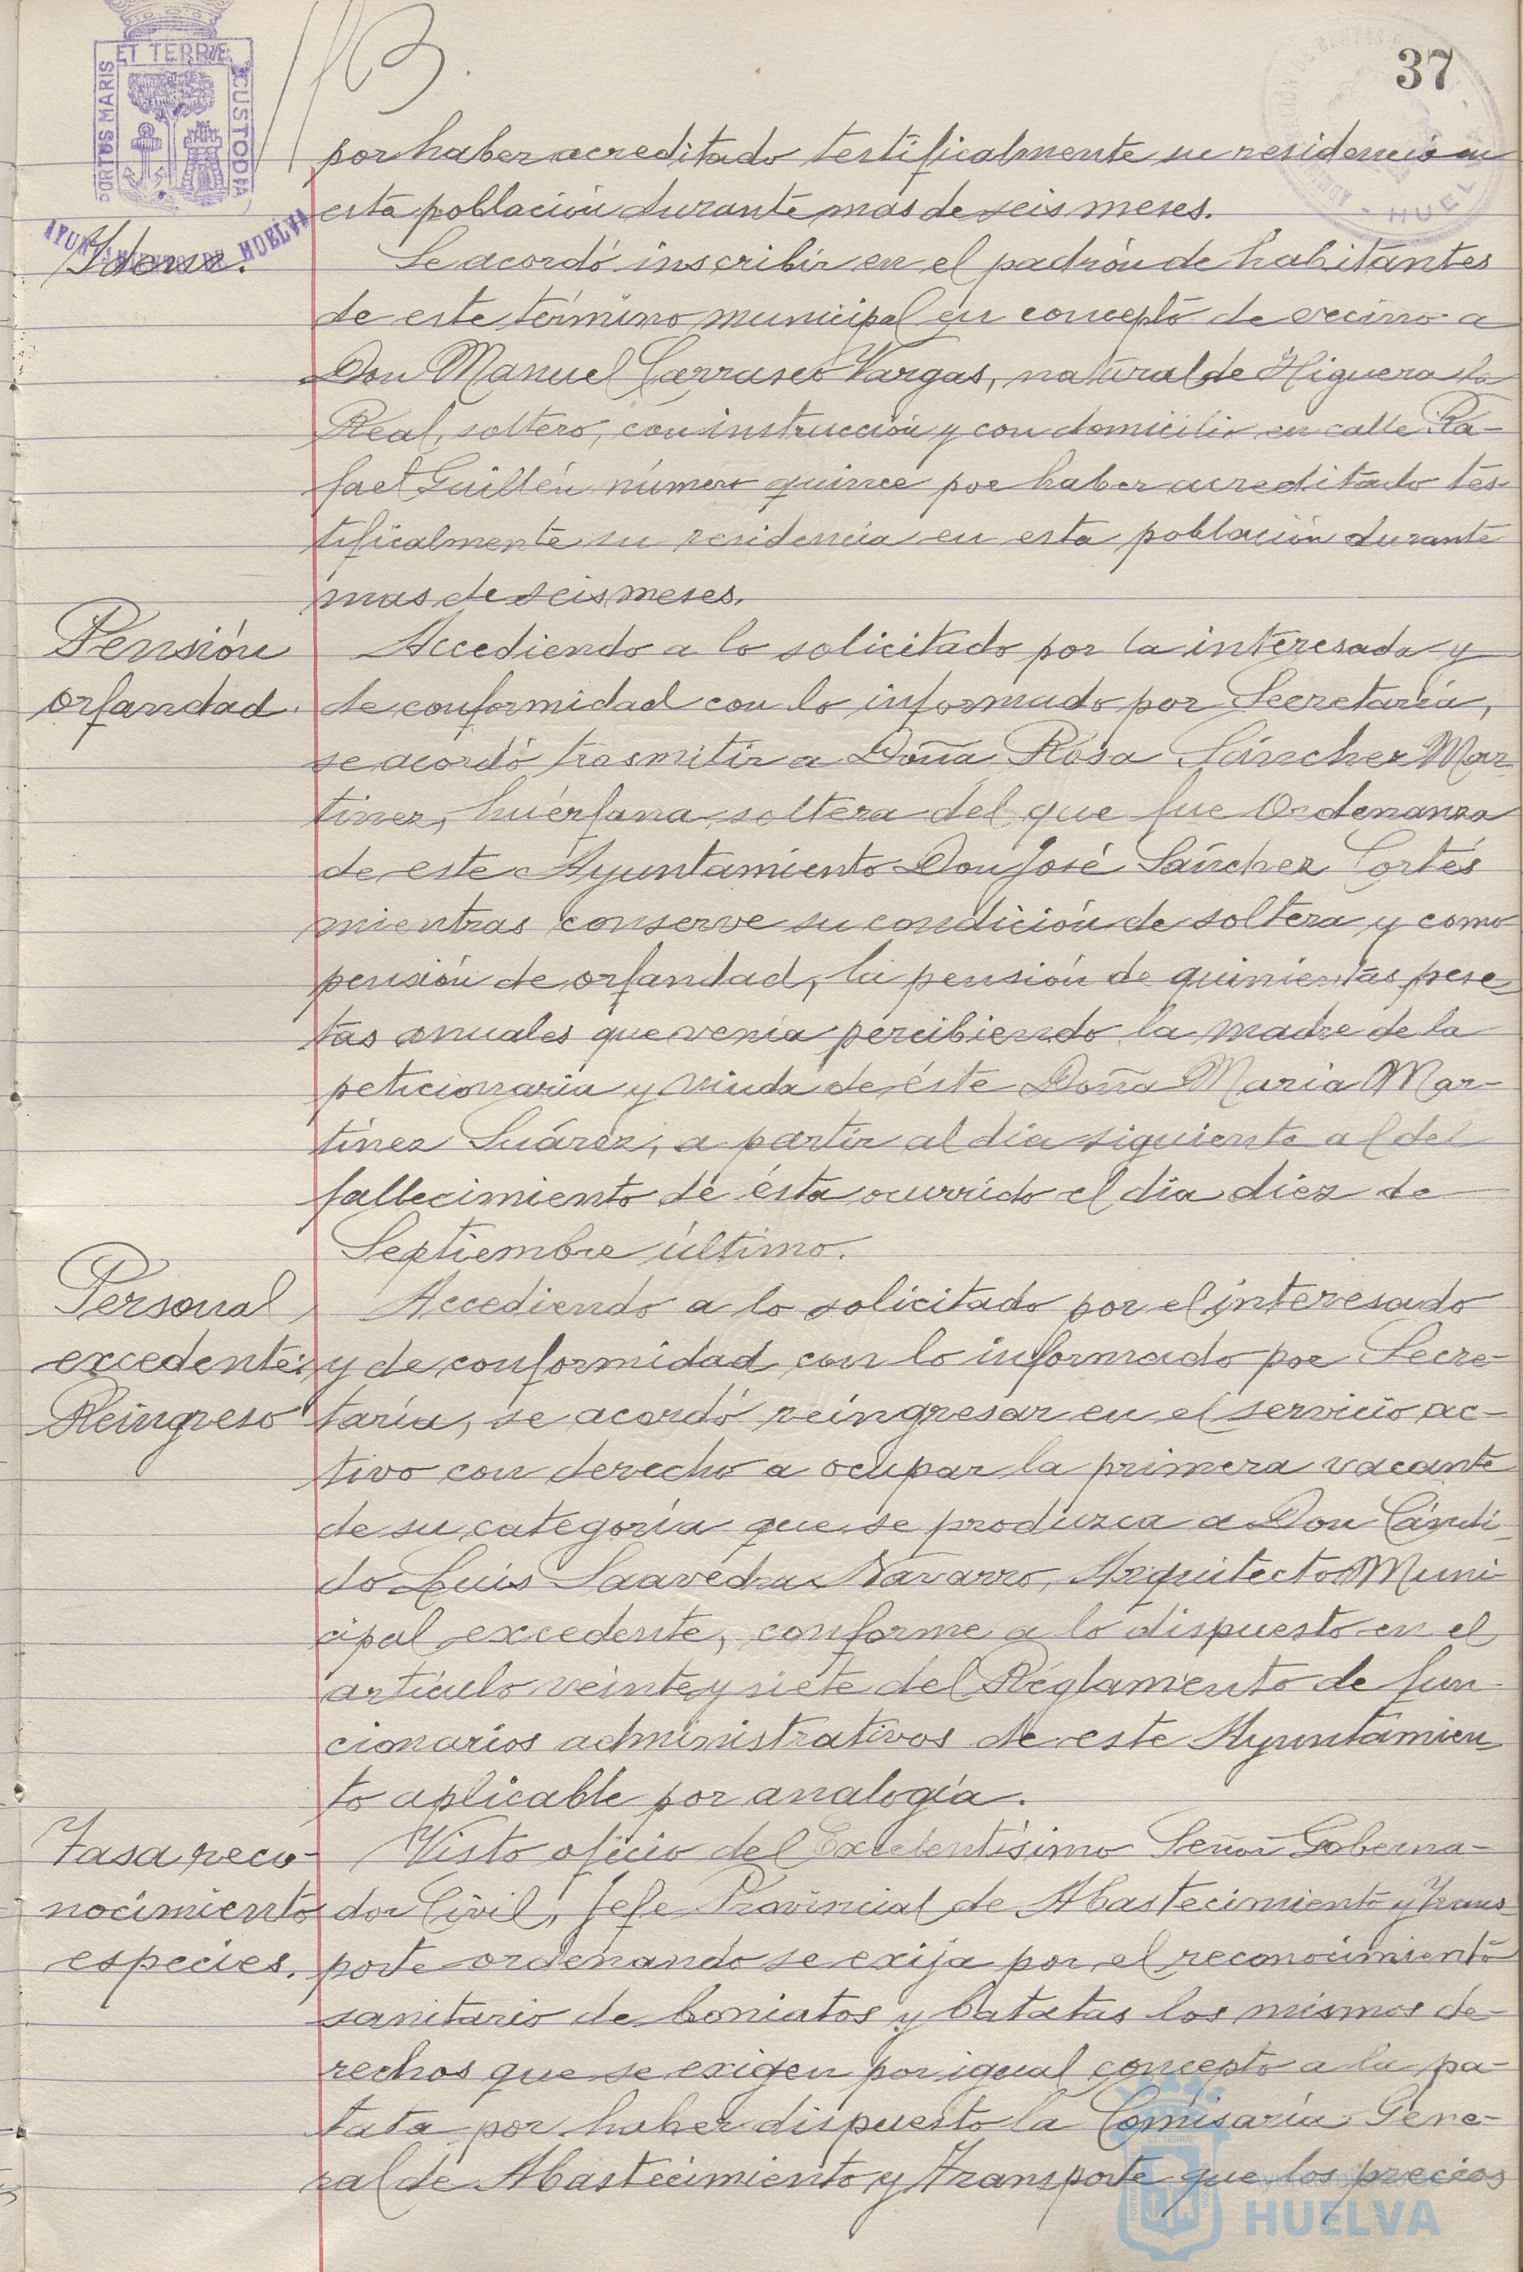 37
ET TERRE
PORTUS MARIS
CUSTODIA
AYUNTAMIENTO DE HUELVA
HUELVA
por haber acreditado testificalmente su residencia en
esta población durante mas de seis meses.
Idem.
Se acordó inscribir en el padrón de habitantes
de este término municipal en concepto de vecino a
Don Manuel Carrasco Vargas, natural de Higuera la
Real, soltero, con instrucción y con domicilio en calle Ra-
fael Guillén número quince por haber acreditado tes-
tificalmente su residencia en esta población durante
mas de seis meses.
Pensión
orfandad.
Accediendo a lo solicitado por la interesada y
de conformidad con lo informado por Secretaría,
se acordó trasmitir a Doña Rosa Sánchez Mar-
tinez, huérfana soltera del que fue Ordenanza
de este Ayuntamiento Don José Sánchez Cortés
mientras conserve su condición de soltera y como
pensión de orfandad, la pensión de quinientas pese-
tas anuales que venía percibiendo la madre de la
peticionaria y viuda de éste Doña Maria Mar-
tínez Suárez, a partir al día siguiente al del
fallecimiento de ésta ocurrido el día diez de
Septiembre último.
Personal
excedente:
Reingreso
Accediendo a lo solicitado por el interesado
y de conformidad con lo informado por Secre-
taría, se acordó reingresar en el servicio ac-
tivo con derecho a ocupar la primera vacante
de su categoría que se produzca a Don Cándi-
do Luis Saavedra Navarro, Arquitecto Muni-
cipal excedente, conforme a lo dispuesto en el
artículo veinte y siete del Reglamento de fun-
cionarios administrativos de este Ayuntamien-
to aplicable por analogía.
Tasa reco-
nocimiento
especies.
Visto oficio del Excelentísimo Señor Goberna-
dor Civil, Jefe Provincial de Abastecimiento y Trans-
porte ordenando se exija por el reconocimiento
sanitario de boniatos y batatas los mismos de-
rechos que se exigen por igual concepto a la pa-
tata por haber dispuesto la Comisaría Gene-
ral de Abastecimiento y Transporte que los precios
Ayuntamiento de
HUELVA